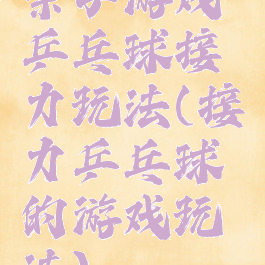 亲子游戏
乒乓球接
力玩法(接
力乒乓球
的游戏玩
法)